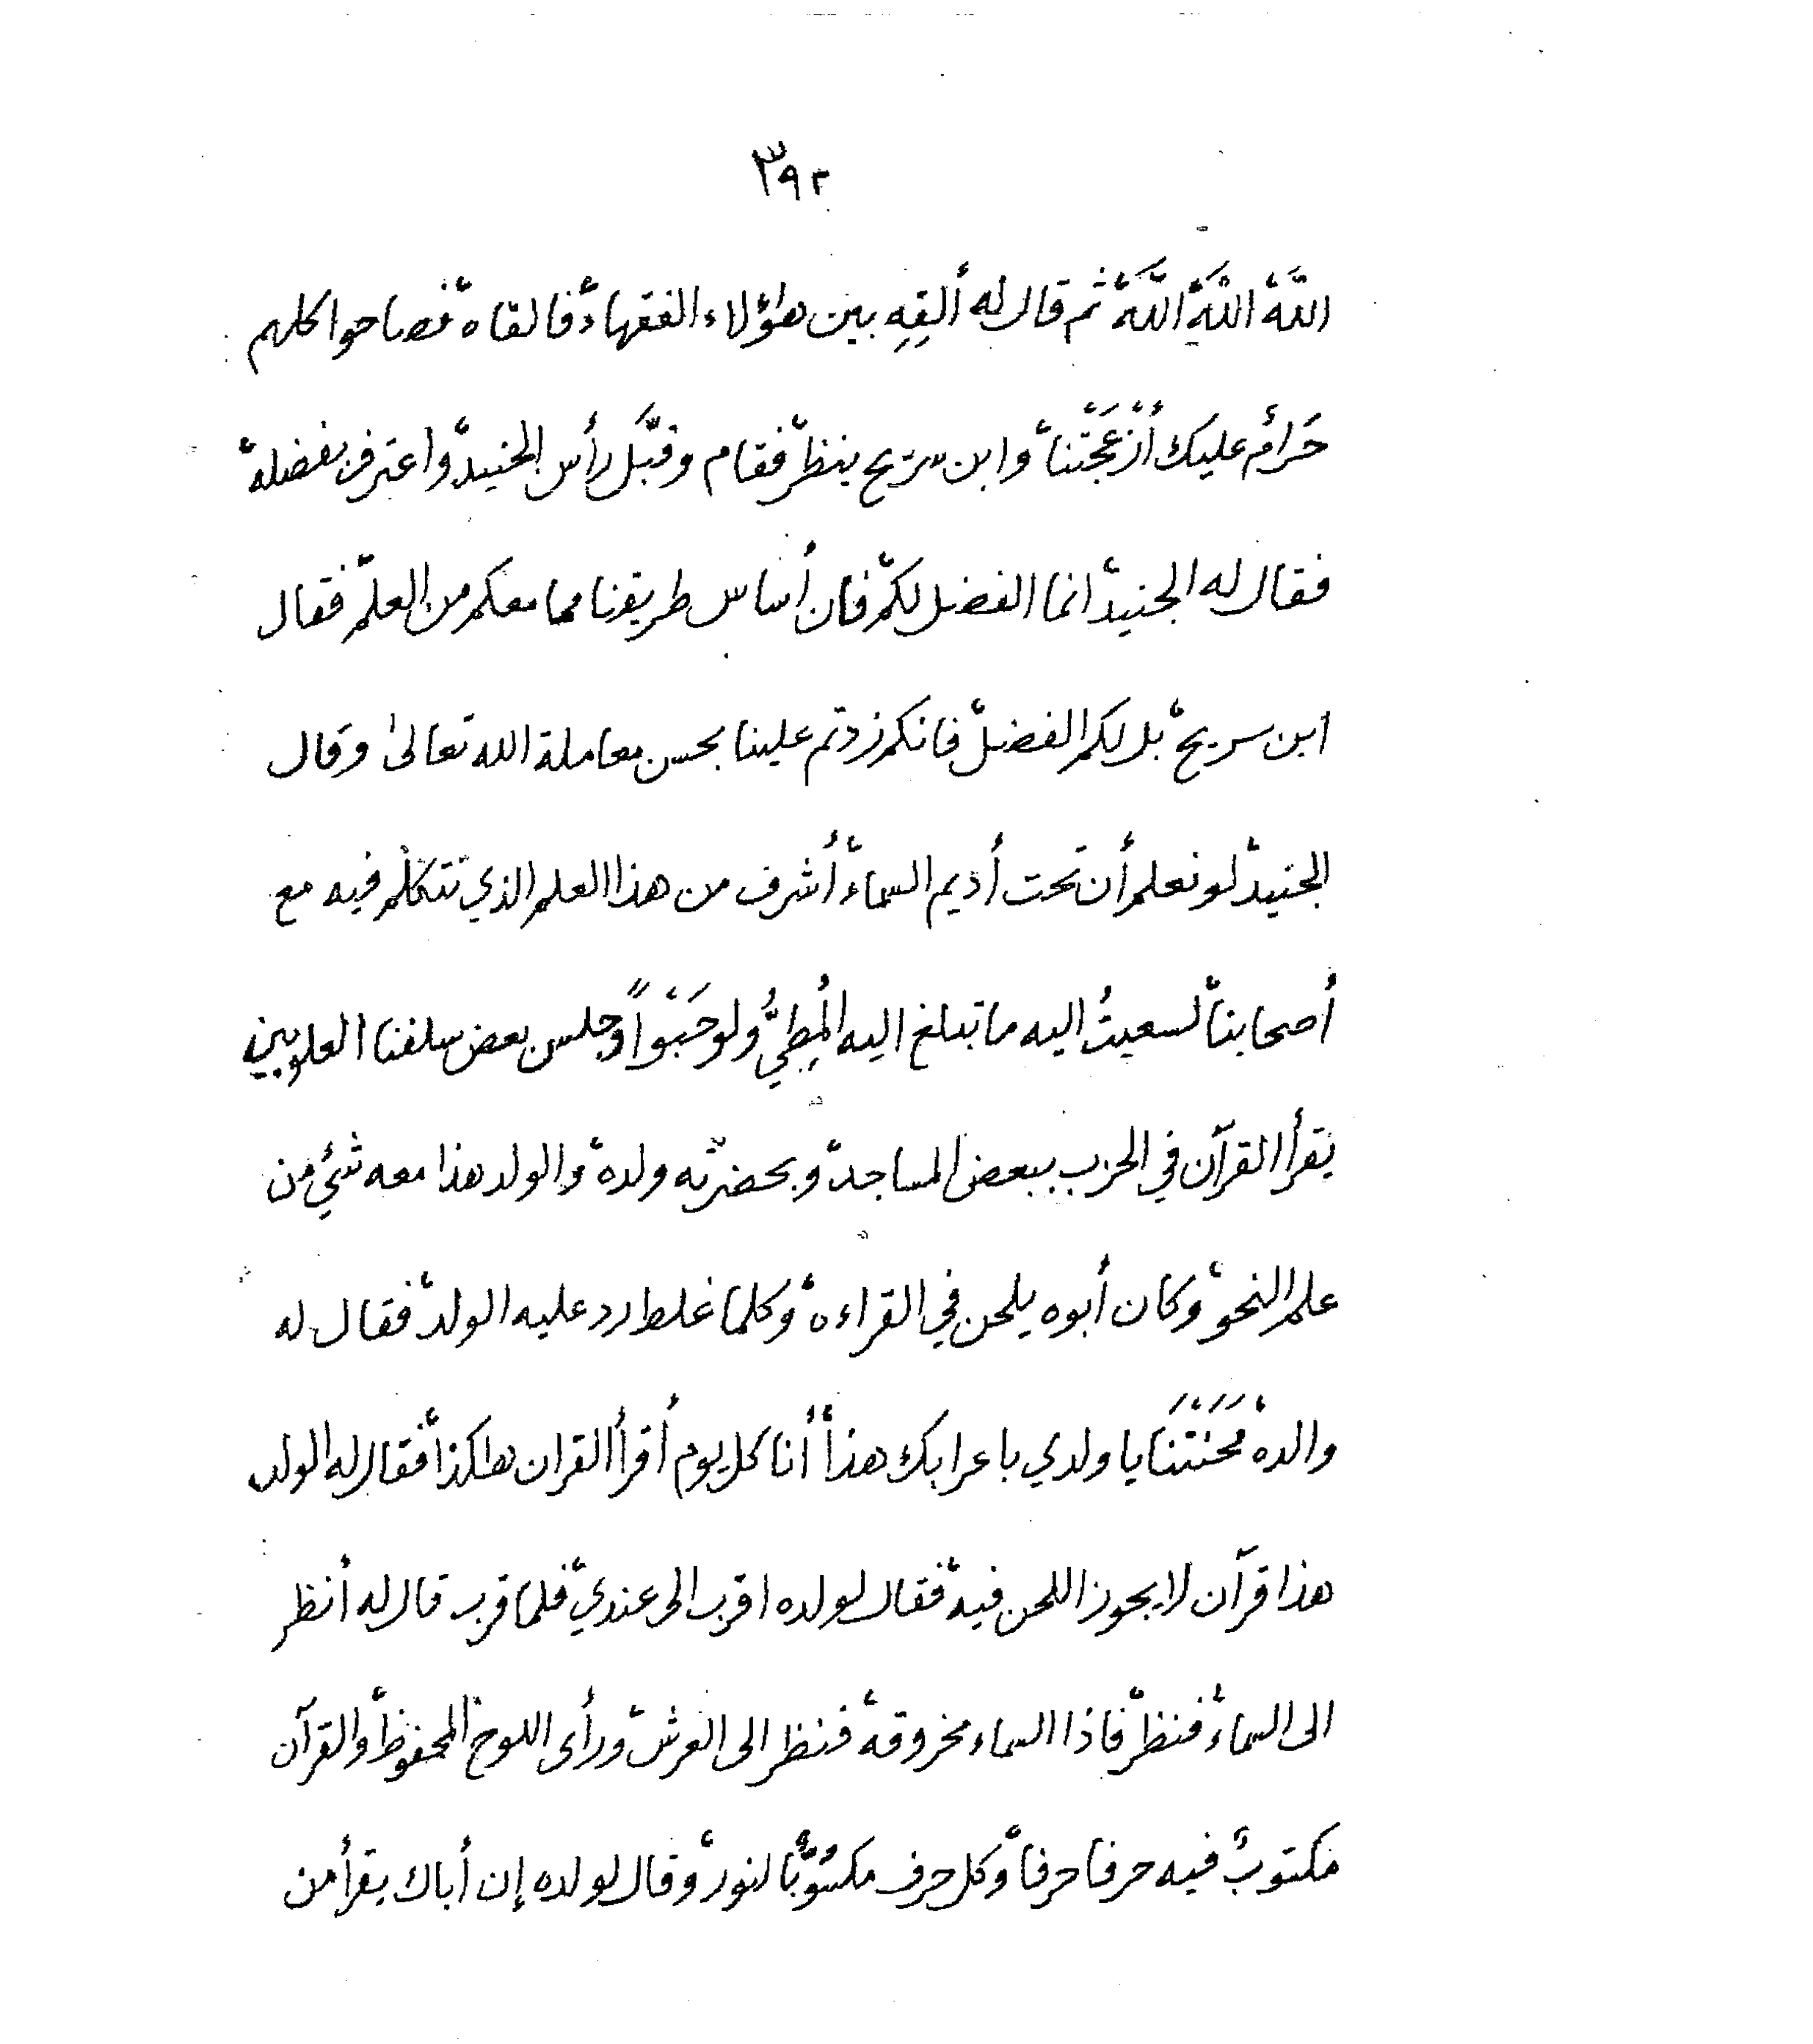 ٣٩٢
اللَّهُ اللَّهُ اللَّهُ، ثم قال له ألقِهِ بين هؤلاء الفقهاء، فالقاه، فصاحوا كلهم
حَرَام عليك أزْعَجْتَنا، وابن سريج ينظر، فقام وقبَّل رأس الجنيد، واعترف بفضله،
فقال له الجنيد، انما الفضل لكم، فان أساس طريقنا مما معكم من العلم، فقال
ابن سريج، بل لكم الفضل، فانكم زدتم علينا بحسن معاملة الله تعالى، وقال
الجنيد، لو نعلم أن تحت أديم السماء، أشرف من هذا العلم الذي نتكلم فيه مع
أصحابنا، لسعيتُ اليه ما تبلغ اليه المُطِيُّ ولو حَبْواً، وجلس بعض سلفنا العلويين
يقرأ القرآن في الحزب ببعض المساجد، وبحضرته ولده، والولد هذا معه شئ من
علم النحو، وكان أبوه يلحن في القراءه، وكلما غلط رد عليه الولد، فقال له
والده، مَحَنْتَنَا يا ولدي باعرابك هذا، أنا كل يوم أقرأ القران هاكذا، فقال له الولد
هذا قرآن لا يجوز اللحن فيه، فقال لولده اقرب الى عندي، فلما قرب قال له أنظر
الى السماء، فنظر، فاذا السماء مخروقة، فنظر الى العرش، ورأى اللوح المحفوظ، والقرآن
مكتوبٌ فيه حرفا حرفا، وكل حرف مكتُوبٌ بالنور، وقال لولده إن أباك يقرأ من